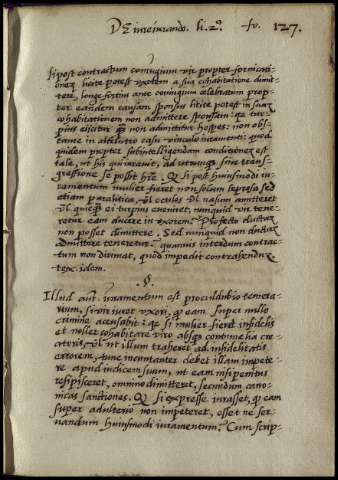 De iureiurando. li. 2º. fo. 127.
si post contractum coniugium vir propter fornicationem
licite potest uxorem a sua cohabitatione dimit-
tere, longe fortius ante coniugium celebratum prop-
ter eandem causam sponsus licite potest in suam
cohabitationem non admittere sponsam: que tur-
pius eiicitur quam non admittitur hospes: non obs-
tante in altero casu vinculo iuramenti: quod
quidem propter subintelligendam conditionem est
tale, ut his qui iuravit, ad utrumque sine trans-
gressione se possit
Et si post huiusmodi iu-
ramentum mulier fieret non solum leprosa sed
etiam paralitica, vel oculos vel nasum amitteret
vel quicquam ei turpius eveniret, nunquid vir tene-
retur eam ducere in uxorem? Profecto ductam
non posset dimittere. Sed nunquid non ductam
admittere teneretur? quamvis interdum contrac-
tum non dirimat, quod impedit contrahendum
rex idem.
§.
Illud aut. iuramentum est proculdubio temera-
rium, si vir iuret uxori, quod eam super nullo
crimine accusabit: quia si mulier fieret infidelis
et nollet cohabitare viro absque contumelia cre-
atoris, vel ut illum traheret ad infidelitatis
errorem, tunc incunctanter debet illam impete-
re apud iudicem suum, ut eam nisi penitus
resipisceret, omnino dimitteret, secundum cano-
nicas sanctiones. Et si expresse iurasset, quod eam
super adulterio non impeteret, esset ne ser-
vandum huiusmodi iuramentum? Cum scrip-